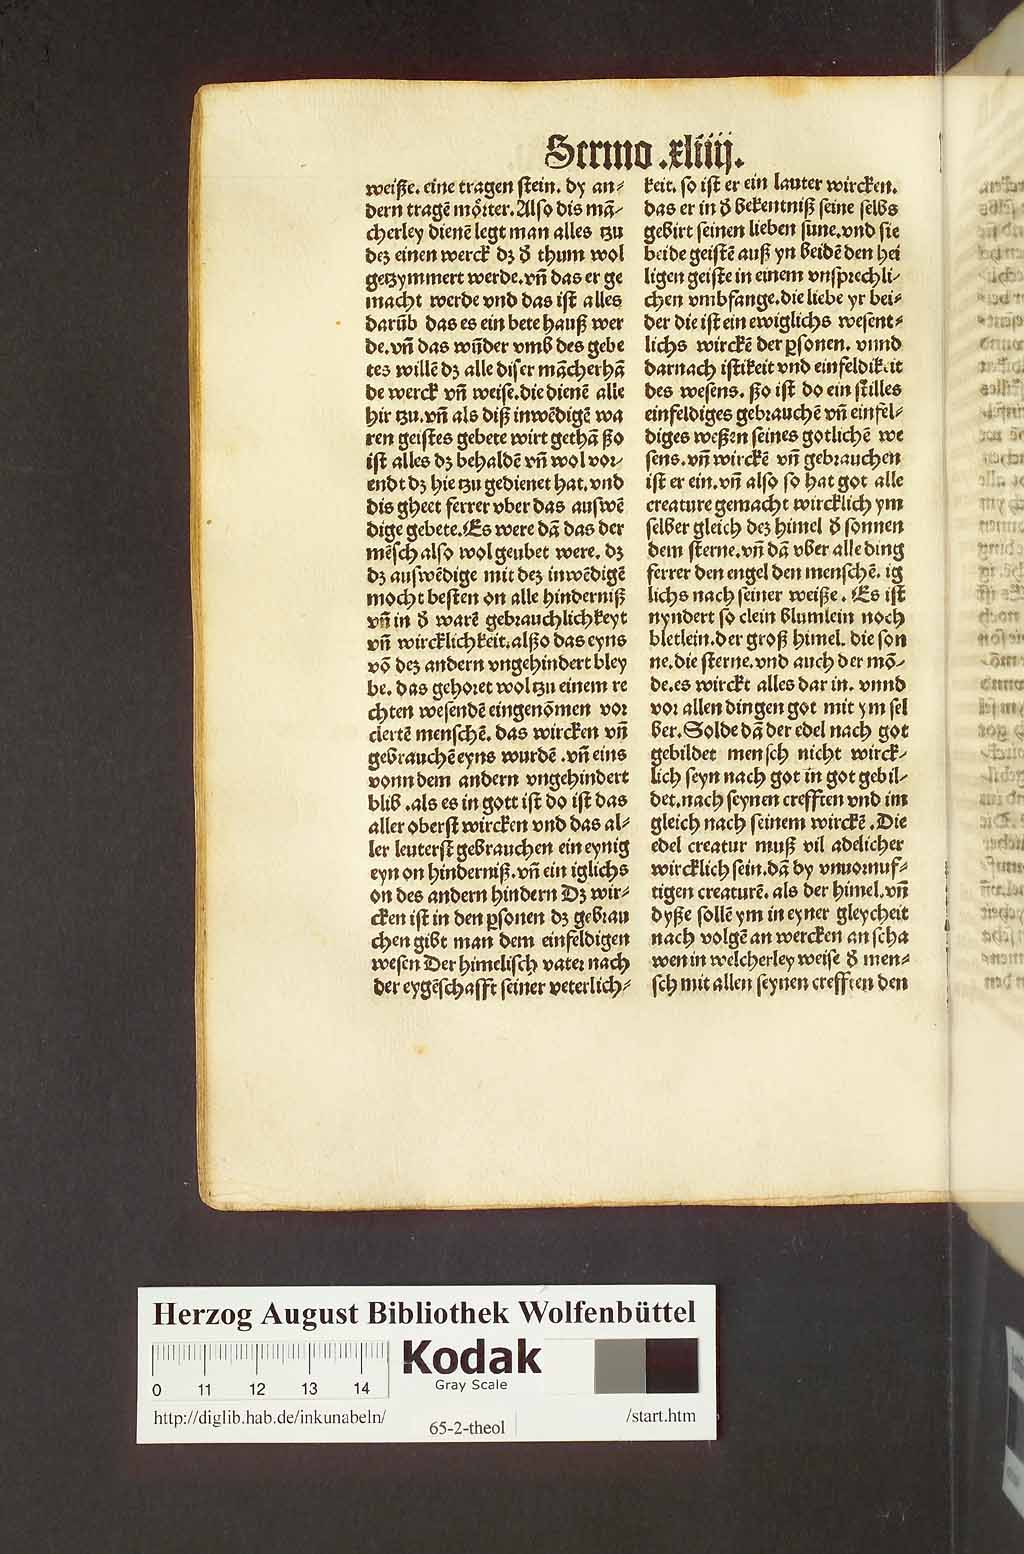 Sermo .xliiij.
weiße. eine tragen stein. dy an⸗
dern tragē moͤrter. Also dis mā⸗
cherley dienē legt man alles tzu
dez einen werck dz d̕ thum wol
getzymmert werde. vn̄ das er ge
macht werde vnd das ist alles
darūb das es ein bete hauß wer
de. vn̄ das wūder vmb des gebe
tes willē dz alle diser mācherhā
de werck vn̄ weise. die dienē alle
hir tzu. vn̄ als diß inwēdigē wa
ren geistes gebete wirt gethā ßo
ist alles dz behaldē vn̄ wol vor⸗
endt dz hie tzu gedienet hat. vnd
dis gheet ferrer vber das auswē
dige gebete. Es were dā das der
mēsch also wol geubet were. dz
dz auswēdige mit dez inwēdigē
mocht besten on alle hinderniß
vn̄ in d̕ warē gebrauchlichkeyt
vn̄ wircklichkeit. alßo das eyns
vō dez andern vngehindert bley
be. das gehoret wol tzu einem re
chten wesendē eingenōmen vor
clertē menschē. das wircken vn̄
gebrauchē eyns wurdē. vn̄ eins
vonn dem andern vngehindert
blib. als es in gott ist do ist das
aller oberst wircken vnd das al⸗
ler leuterst gebrauchen ein eynig
eyn on hinderniß. vn̄ ein iglichs
on des andern hindern Dz wir⸗
cken ist in den ꝑsonen dz gebrau
chen gibt man dem einfeldigen
wesen Der himelisch vater nach
der eygēschafft seiner veterlich⸗
keit. so ist er ein lauter wircken.
das er in d̕ bekentniß seine selbs
gebirt seinen lieben sune. vnd sie
beide geistē auß yn beidē den hei
ligen geiste in einem vnsprechli⸗
chen vmbfange. die liebe yr bei⸗
der die ist ein ewiglichs wesent⸗
lichs wirckē der ꝑsonen. vnnd
darnach istikeit vnd einfeldikeit
des wesens. ßo ist do ein stilles
einfeldiges gebrauchē vn̄ einfel⸗
diges weßen seines gotlichē we
sens. vn̄ wirckē vn̄ gebrauchen
ist er ein. vn̄ also so hat got alle
creature gemacht wircklich ym
selber gleich dez himel d̕ sonnen
dem sterne. vn̄ dā vber alle ding
ferrer den engel den menschē. ig
lichs nach seiner weiße. Es ist
nyndert so clein blumlein noch
bletlein. der groß himel. die son
ne. die sterne. vnd auch der mō⸗
de. es wirckt alles dar in. vnnd
vor allen dingen got mit ym sel
ber. Solde dā der edel nach got
gebildet mensch nicht wirck⸗
lich seyn nach got in got gebil⸗
det. nach seynen crefften vnd im
gleich nach seinem wirckē. Die
edel creatur muß vil adelicher
wircklich sein. dā dy vnuornuf⸗
tigen creaturē. als der himel. vn̄
dyße sollē ym in eyner gleycheit
nach volgē an wercken an scha
wen in welcherley weise d̕ men⸗
sch mit allen seynen crefften den
Herzog August Bibliothek Wolfenbüttel
0 11 12 13 14
Kodak
Gray Scale
http://diglib.hab.de/inkunabeln/
65-2-theol
/start.htm